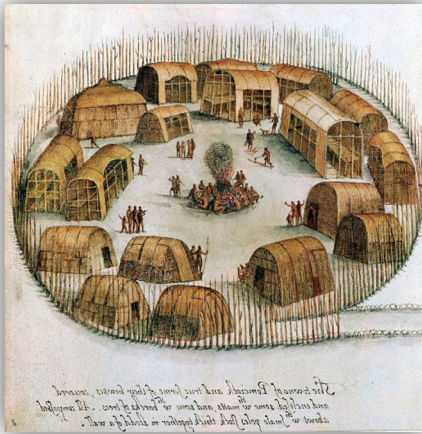 The towne of Pomeiock and true forme of their howses, couered
and enclosed some wth matts and some wth barcks of trees. All compassed
abowt wth smale poles stock thick together in stedd of a wall.